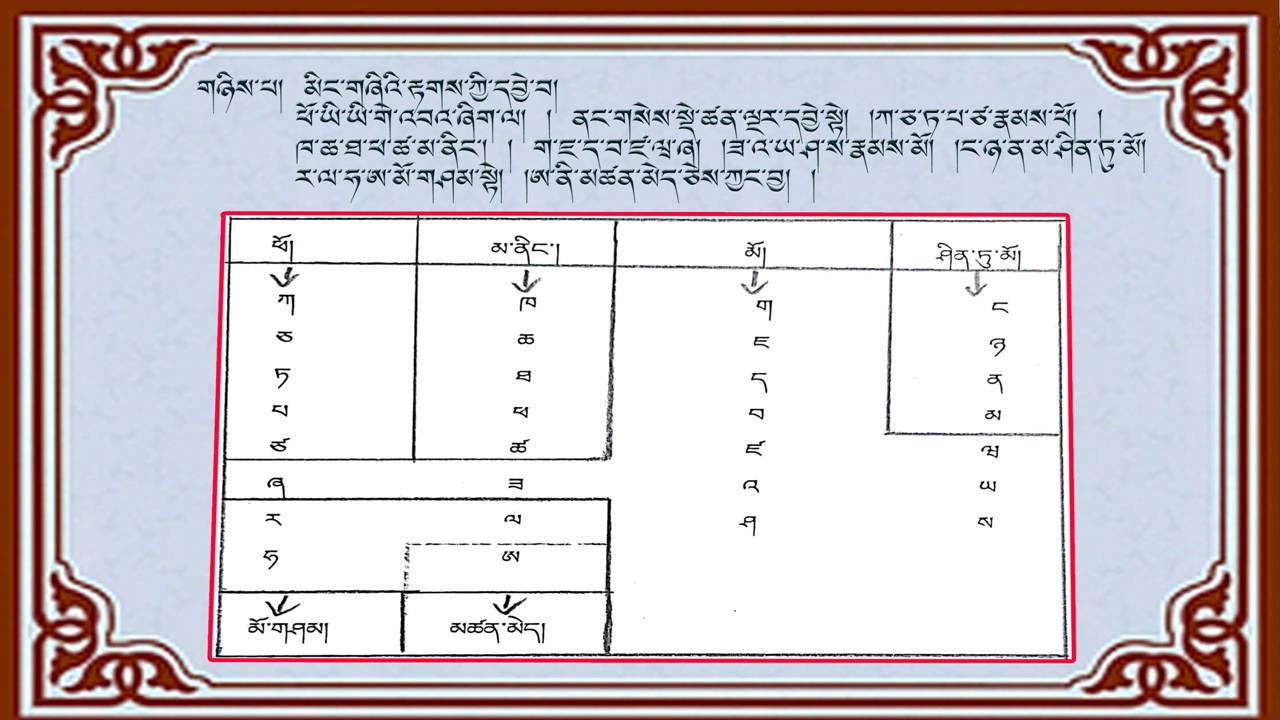 གཉིས་པ།  མིང་གཞིའི་རྟགས་ཀྱི་དབྱེ་བ།
ཕོ་ཡི་ཡི་གེ་འབའ་ཞིག་ལ། ། ནང་གསེས་སྡེ་ཚན་ལྔར་དབྱེ་སྟེ། །ཀ་ཅ་ཏ་པ་ཙ་རྣམས་ཕོ། །
ཁ་ཆ་ཐ་ཕ་ཚ་མ་ནིང་། ། ག་ཇ་ད་བ་ཛ་ཝ་ཞ། །ཟ་འ་ཡ་ཤ་ས་རྣམས་མོ། །ང་ཉ་ན་མ་ཤིན་ཏུ་མོ།
ར་ལ་ཧ་ཨ་མོ་གཤམ་སྟེ། །ཨ་ནི་མཚན་མེད་ཅེས་ཀྱང་བྱ། །
ཕོ། མ་ནིང་། མོ། ཤིན་ཏུ་མོ།
ཀ ཁ ག ང
ཅ ཆ ཇ ཉ
ཏ ཐ ད ན
པ ཕ བ མ
ཙ ཚ ཛ ཝ
ཞ ཟ འ ཡ
ར ལ ཤ ས
ཧ ཨ
མོ་གཤམ། མཚན་མེད།